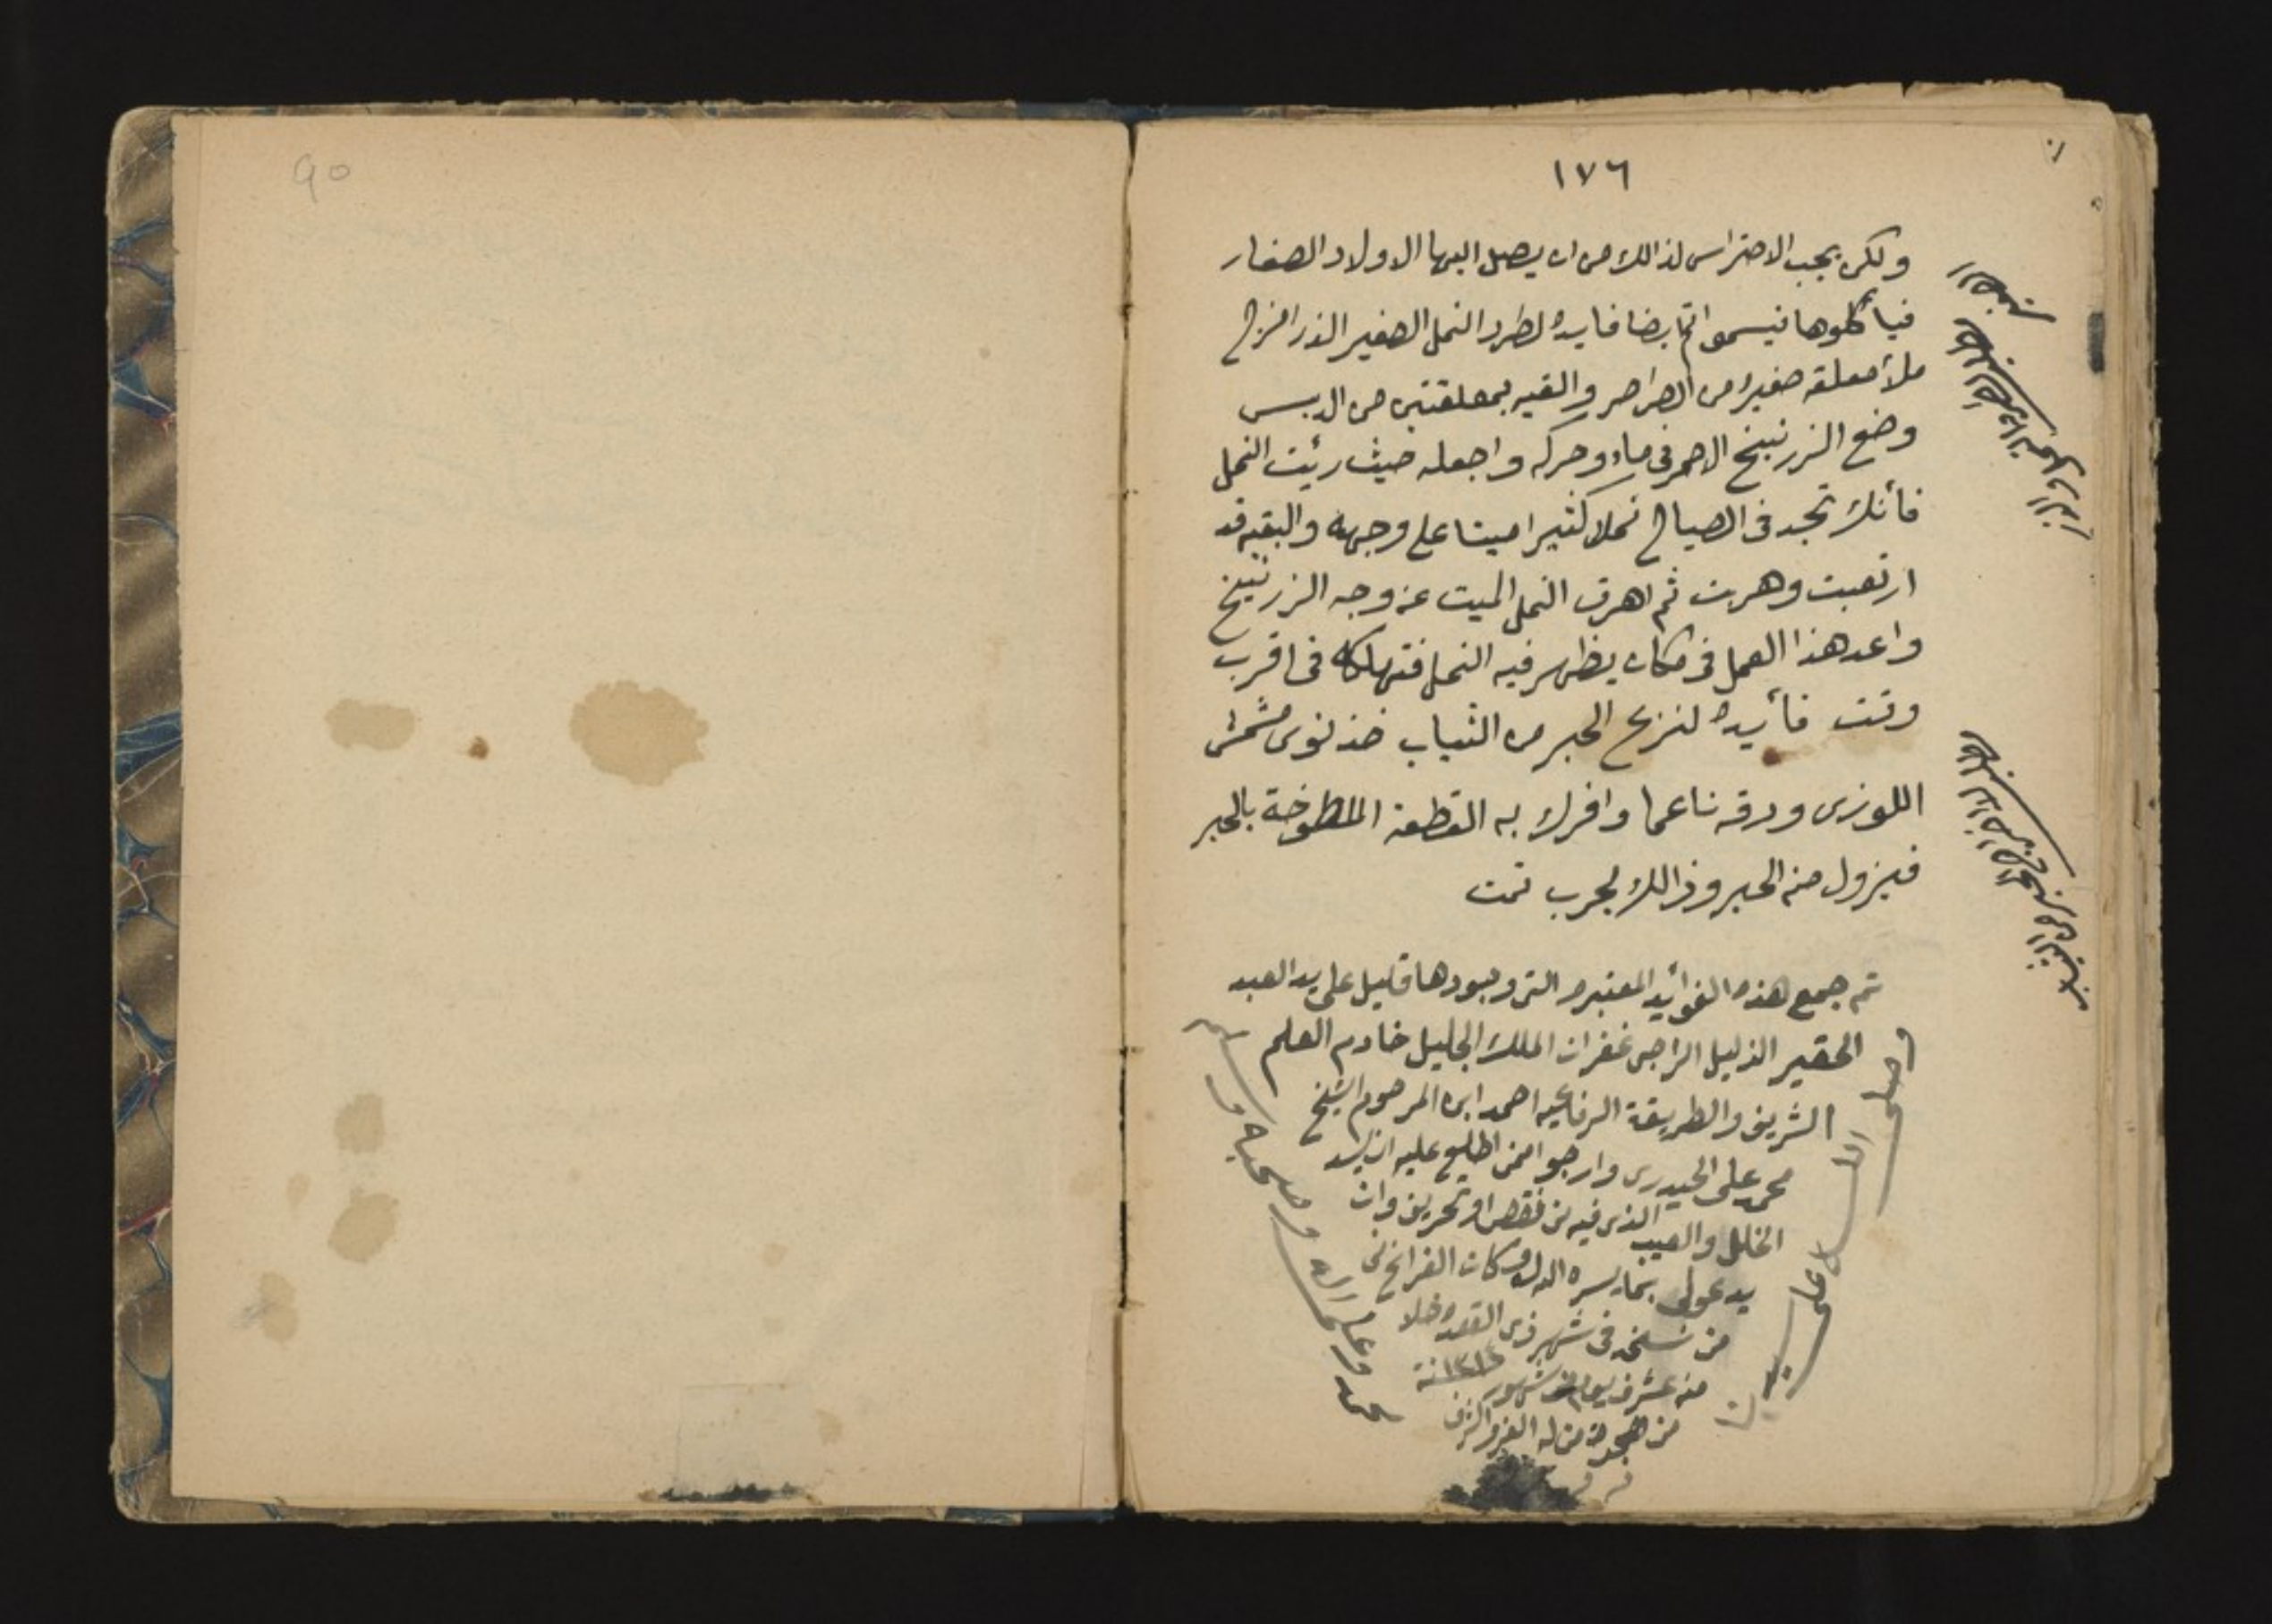 ١٧٦
ولكن يجب الاحتراس لذالك من ان يصل اليها الاولاد الصغار
فيأكلوها فيسموا ثم ايضا فايدة لطرد النمل الصغير الذر امزج
ملأ معلقه صغيرة من الطراطر والقيه بمعلقتين من الدبس
وضع الزرنيخ الاحمر في ماء وحركه واجعله حيث رئيت النمل
فأنك تجد في الصباح نملا كثيرا ميتا على وجهه والبقيه قد
ارتعبت وهربت ثم اهرق النمل الميت عن وجه الزرنيخ
واعد هذا العمل في مكان يظهر فيه النمل فتهلكه في اقرب
وقت فأيدة لنزع الحبر من الثياب خذ نوى مشمش
اللوزى ودقه ناعما وافرك به القطعة الملطوخة بالحبر
فيزول منه الحبر وذالك مجرب تمت
تم جمع هذه الفوائيد المعتبره التى وجودها قليل على يد العبد
الحقير الذليل الراجى غفران الملك الجليل خادم العلم
الشريف والطريقة الرفاعيه احمد ابن المرحوم الشيخ
محمد على الحيدرى وارجوا ممن اطلع عليه ان يسد
الخلل والعيب الذى فيه من نقص او تحريف وان
يدعولى بما يسره الله وكان الفراغ
من نسخه في شهر ذى القعدة خلا
منه عشرة شهور سنة ١٣١٤
من هجرة من له العز والشرف
وصلى الله على سيدنا
محمد وعلى اله وصحبه وسلم